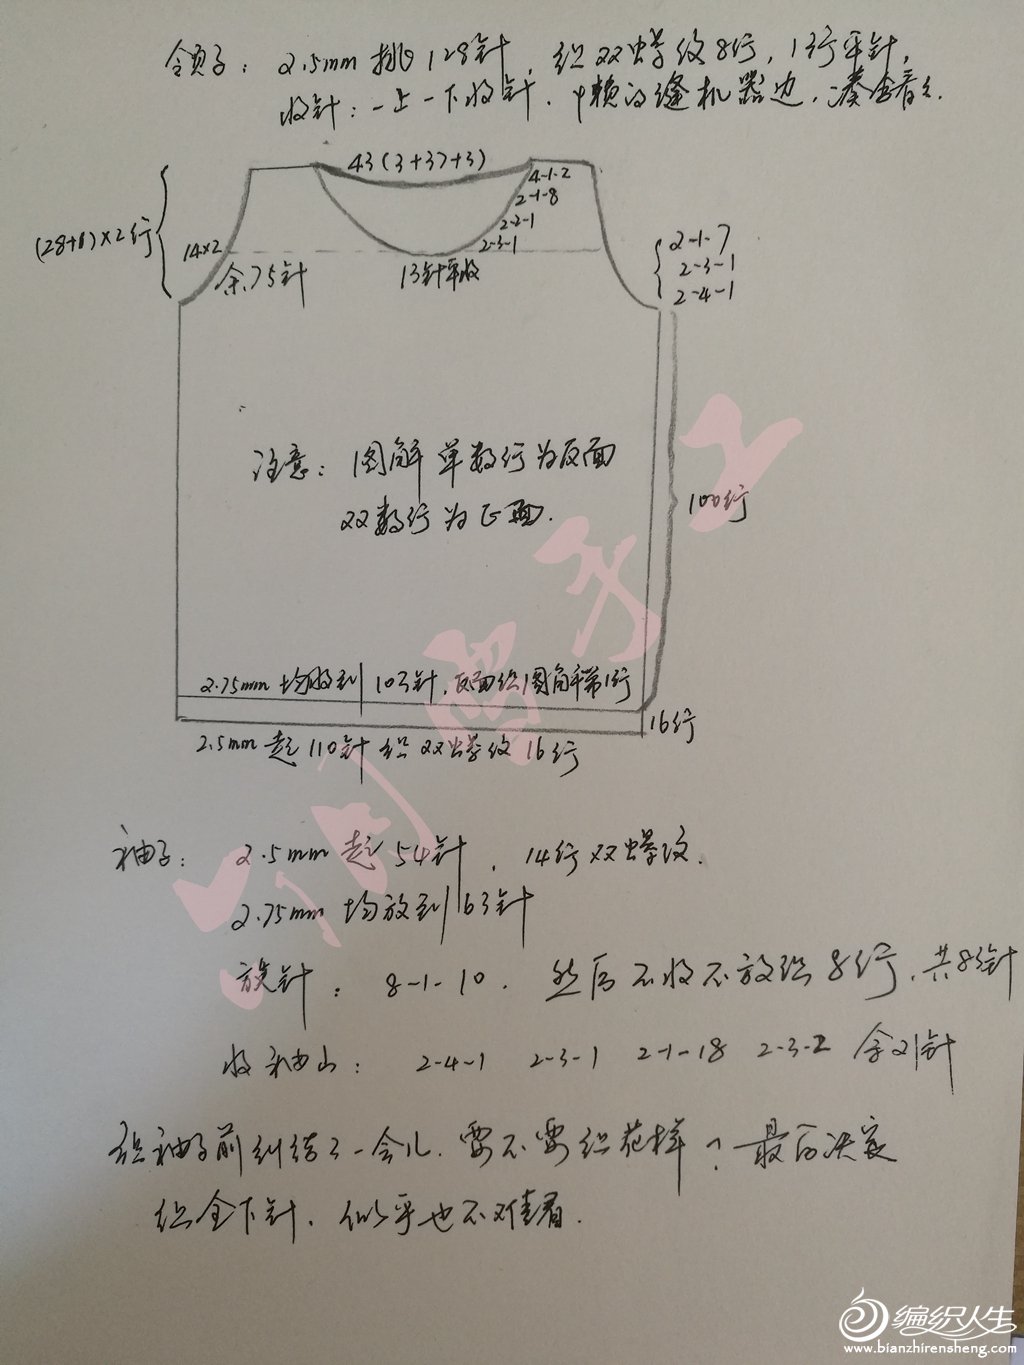 领子: 2.5mm 挑128针, 织双螺纹8行, 1行平针,
收针:一上一下收针. 中赖的缝机器边. 凑合着看.
43(3+37+3)
4-1-2
2-1-8
2-2-1
2-3-1
14×2
余75针
13针平收
2-1-7
2-3-1
2-4-1
注意: 图解单数行为反面
双数行为正面.
100行
2.75mm 均收到103针, 反面织图解第1行
16行
2.5mm 起110针 织双螺纹16行
袖子: 2.5mm 起54针, 14行双螺纹.
2.75mm 均放到63针
放针: 8-1-10. 然后不收不放织8行, 共83针
收袖山: 2-4-1 2-3-1 2-1-18 2-3-2 余21针
织袖子前纠结了一会儿. 要不要织花样? 最后决定
织全下针. 似乎也不难看.
编织人生
www.bianzhirensheng.com